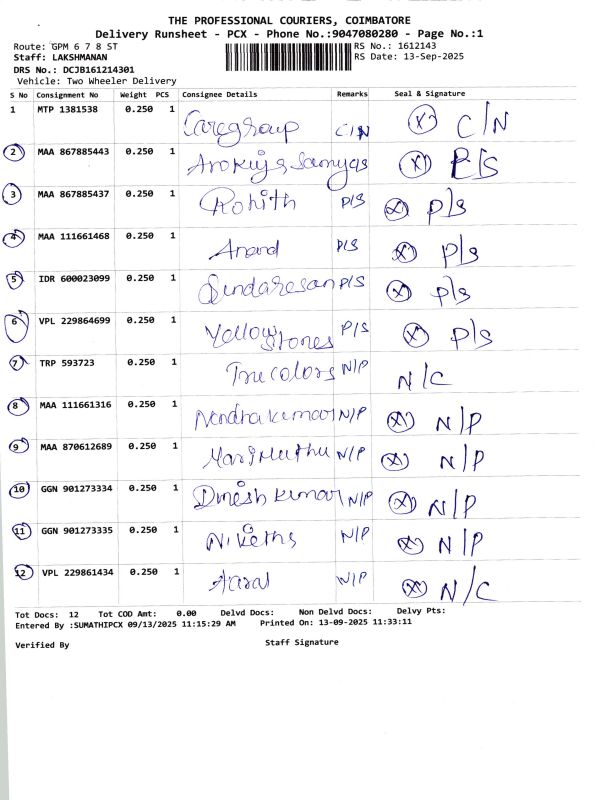 THE PROFESSIONAL COURIERS, COIMBATORE
Delivery Runsheet - PCX - Phone No.:9047080280 - Page No.:1
Route: GPM 6 7 8 ST RS No.: 1612143
Staff: LAKSHMANAN RS Date: 13-Sep-2025
DRS No.: DCJB161214301
Vehicle: Two Wheeler Delivery
S No Consignment No Weight PCS Consignee Details Remarks Seal & Signature
1 MTP 1381538 0.250 1 Caregroup C/N (X) C/N
2 MAA 867885443 0.250 1 (X) P/S
3 MAA 867885437 0.250 1 Rohith P/S (X) P/S
4 MAA 111661468 0.250 1 Anand P/S (X) P/S
5 IDR 600023099 0.250 1 Sundaresan P/S (X) P/S
6 VPL 229864699 0.250 1 Yellow Stones P/S (X) P/S
7 TRP 593723 0.250 1 True colors N/P N/C
8 MAA 111661316 0.250 1 Nandha kumar N/P (X) N/P
9 MAA 870612689 0.250 1 Marimuthu N/P (X) N/P
10 GGN 901273334 0.250 1 Dinesh kumar N/P (X) N/P
11 GGN 901273335 0.250 1 N/P (X) N/P
12 VPL 229861434 0.250 1 N/P (X) N/C
Tot Docs: 12 Tot COD Amt: 0.00 Delvd Docs: Non Delvd Docs: Delvy Pts:
Entered By :SUMATHIPCX 09/13/2025 11:15:29 AM Printed On: 13-09-2025 11:33:11
Verified By Staff Signature